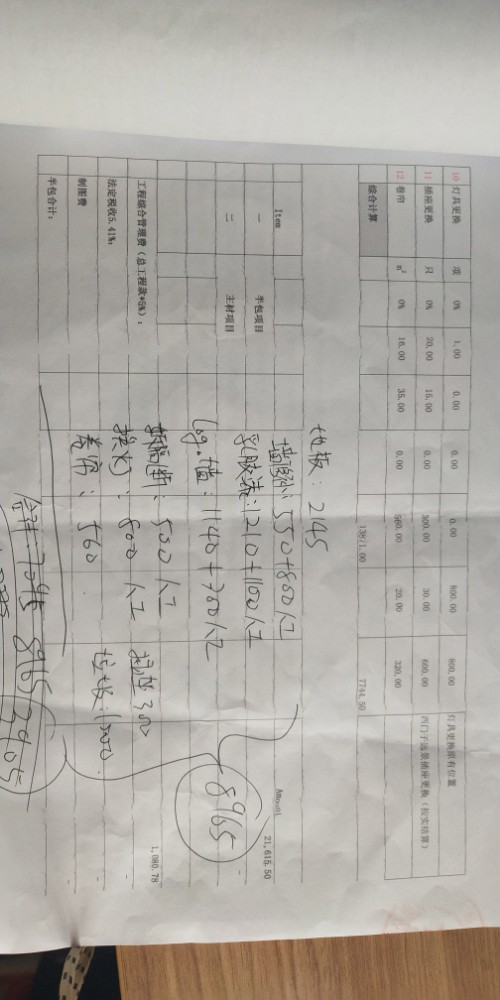 10 灯具更换 项 0% 1.00 0.00 0.00 0.00 800.00 800.00 灯具更换原有位置
11 插座更换 只 0% 20.00 15.00 0.00 300.00 30.00 600.00 西门子远景插座更换（按实结算）
12 卷帘 m² 0% 16.00 35.00 0.00 560.00 20.00 320.00
综合计算 13871.00 7744.50
地板：2145
Item Amount
墙 550+800人工
一 半包项目 21,615.50
乳胶漆：1210+1100人工
二 主材项目
logo墙：1140+700人工
8965
500人工 300
工程综合管理费（总工程款*5%）： 1,080.78
换灯：800人工
法定税收5.41%： -
垃圾：1000.
卷帘：560
制图费 -
半包合计： -
合计：7045 8965